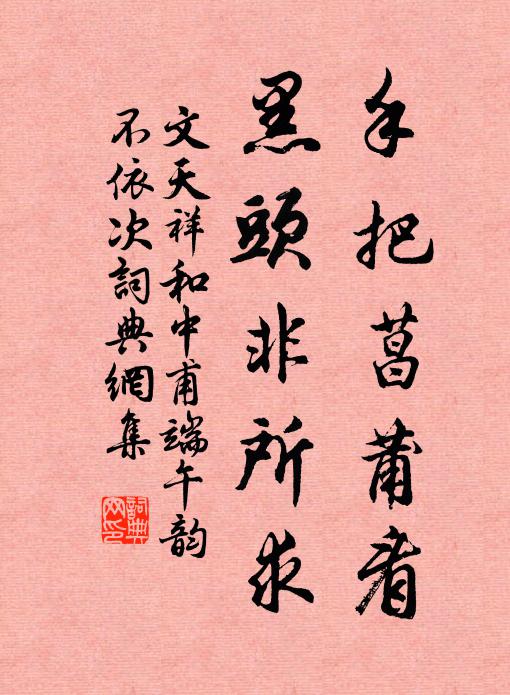 手把菖蒲看
黑頭非所求
文天祥和中甫端午韵
不依次詞典網集
詞典网印